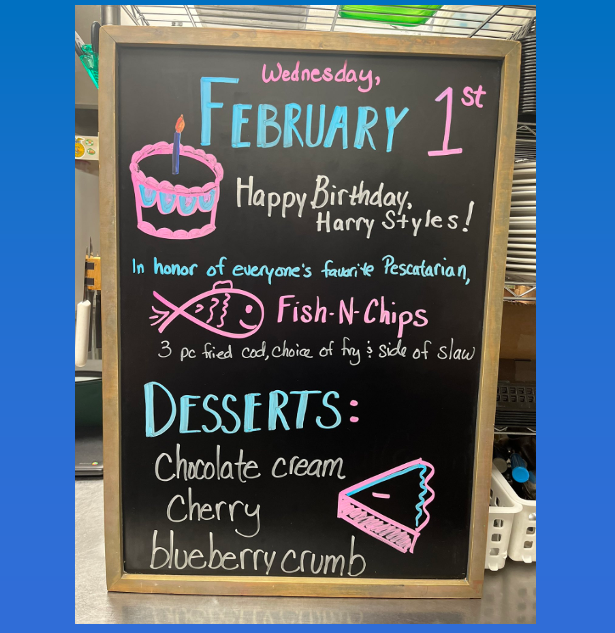 Wednesday,
FEBRUARY 1st
Happy Birthday,
Harry Styles!
In honor of everyone's favorite Pescatarian,
Fish-N-Chips
3 pc fried cod, choice of fry & side of slaw
DESSERTS:
Chocolate cream
Cherry
blueberry crumb